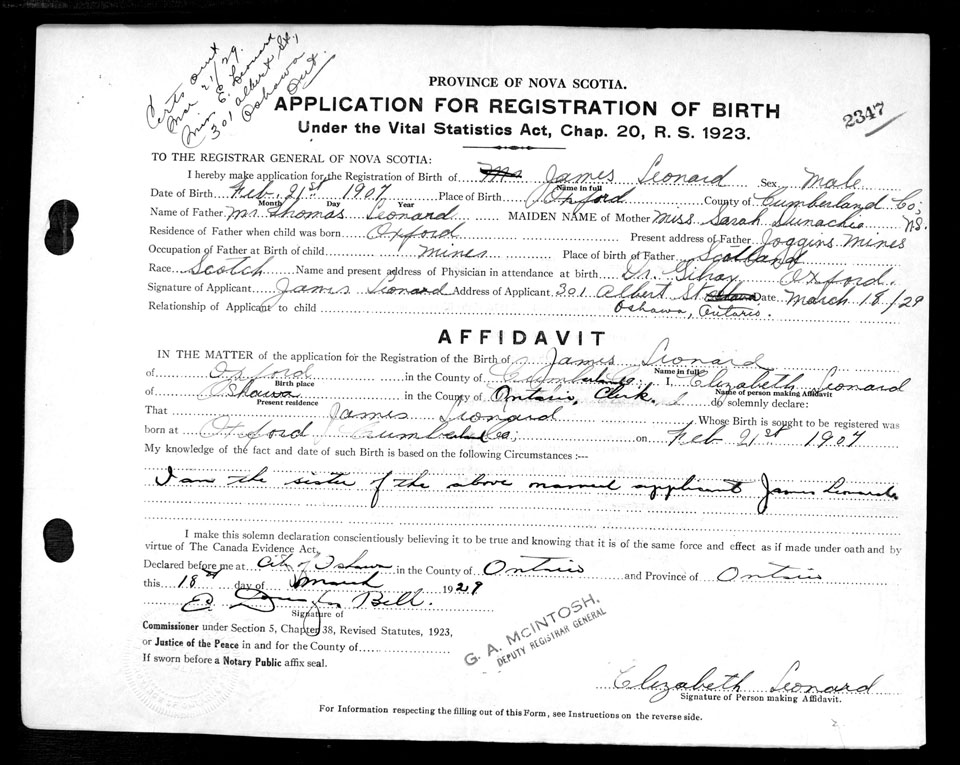 Certs out
Mar 21/29.
Miss E. Leonard
301 Albert St.,
Oshawa
Ont.
PROVINCE OF NOVA SCOTIA.
APPLICATION FOR REGISTRATION OF BIRTH
2347
Under the Vital Statistics Act, Chap. 20, R. S. 1923.
TO THE REGISTRAR GENERAL OF NOVA SCOTIA:
I hereby make application for the Registration of Birth of Mr James Leonard Sex Male
Name in full
Date of Birth Feb. 21st 1907 Place of Birth Oxford County of Cumberland Co; N.S.
Month Day Year
Name of Father Mr Thomas Leonard MAIDEN NAME of Mother Miss Sarah
Residence of Father when child was born Oxford Present address of Father Joggins Mines
Occupation of Father at Birth of child Mines Place of birth of Father Scotland
Race Scotch Name and present address of Physician in attendance at birth Dr. Gilray Oxford.
Signature of Applicant James Leonard Address of Applicant 301 Albert St Oshawa Date March 18/29
Relationship of Applicant to child Oshawa, Ontario.
AFFIDAVIT
IN THE MATTER of the application for the Registration of the Birth of James Leonard
Name in full
of Oxford in the County of Cumberland Co; I, Elizabeth Leonard
Birth place Name of person making Affidavit
of Oshawa in the County of Ontario, Clerk. do solemnly declare:
Present residence
That James Leonard Whose Birth is sought to be registered was
born at Oxford Cumberland Co; on Feb 21st 1907
My knowledge of the fact and date of such Birth is based on the following Circumstances :—
I am the sister of the above named applicant James Leonard
I make this solemn declaration conscientiously believing it to be true and knowing that it is of the same force and effect as if made under oath and by
virtue of The Canada Evidence Act,
Declared before me at City of Oshawa in the County of Ontario and Province of Ontario
this 18th day of March 1929
E. Douglas Bell.
Signature of
Commissioner under Section 5, Chapter 38, Revised Statutes, 1923,
or Justice of the Peace in and for the County of
If sworn before a Notary Public affix seal.
G. A. McINTOSH.
DEPUTY REGISTRAR GENERAL
Elizabeth Leonard
Signature of Person making Affidavit.
For Information respecting the filling out of this Form, see Instructions on the reverse side.